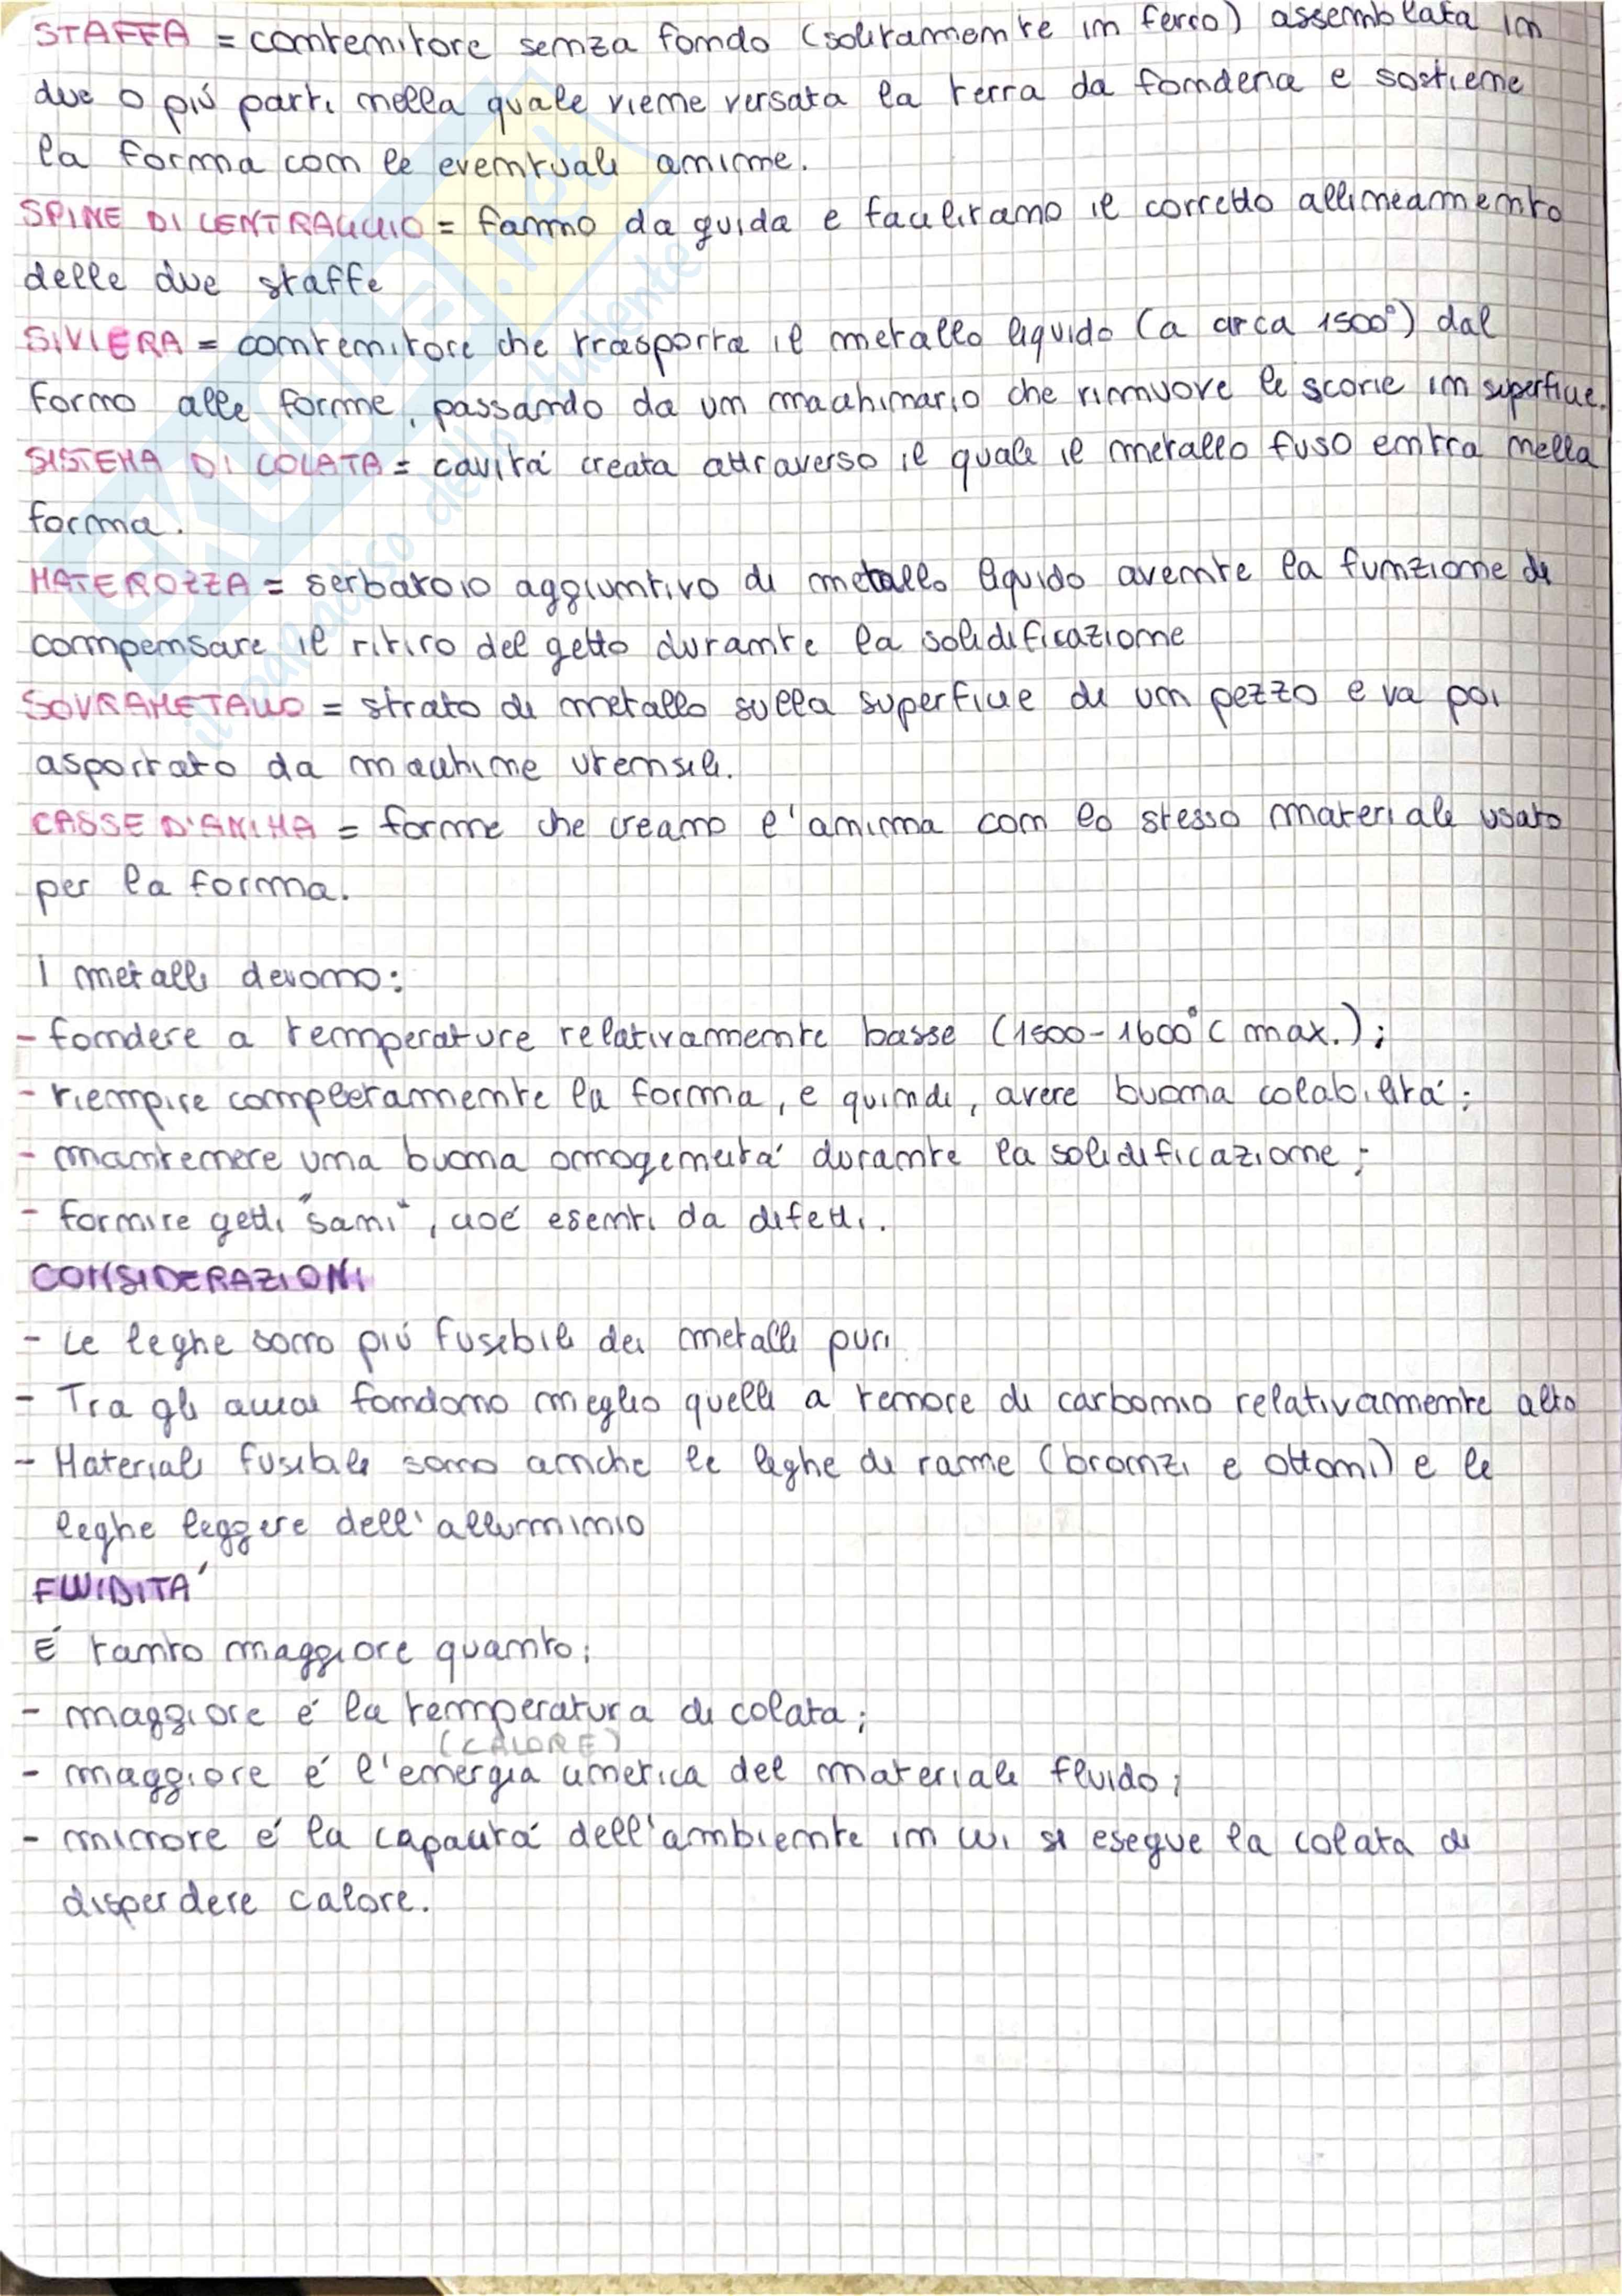 STAFFA = contenitore senza fondo (solitamente in ferro) assemblata in
due o più parti nella quale viene versata la terra da fonderia e sostiene
la forma con le eventuali anime.
SPINE DI CENTRAGGIO = fanno da guida e facilitano il corretto allineamento
delle due staffe
SIVIERA = contenitore che trasporta il metallo liquido (a circa 1500°) dal
forno alle forme, passando da un macchinario che rimuove le scorie in superficie.
SISTEMA DI COLATA = cavità creata attraverso il quale il metallo fuso entra nella
forma.
MATEROZZA = serbatoio aggiuntivo di metallo liquido avente la funzione di
compensare il ritiro del getto durante la solidificazione
SOVRAMETALLO = strato di metallo sulla superficie di un pezzo e va poi
asportato da macchine utensili.
CASSE D'ANIMA = forme che creano l'anima con lo stesso materiale usato
per la forma.
I metalli devono:
- fondere a temperature relativamente basse (1500-1600°C max.);
- riempire completamente la forma, e quindi, avere buona colabilità;
- mantenere una buona omogeneità durante la solidificazione;
- fornire getti "sani", cioè esenti da difetti.
CONSIDERAZIONI
- Le leghe sono più fusibili dei metalli puri
- Tra gli acciai fondono meglio quelli a tenore di carbonio relativamente alto
- Materiali fusibili sono anche le leghe di rame (bronzi e ottoni) e le
leghe leggere dell'alluminio
FLUIDITA'
É tanto maggiore quanto:
- maggiore é la temperatura di colata;
(CALORE)
- maggiore é l'energia cinetica del materiale fluido;
- minore é la capacità dell'ambiente in cui si esegue la colata di
disperdere calore.
SKUOLA.net
il paradiso dello studente